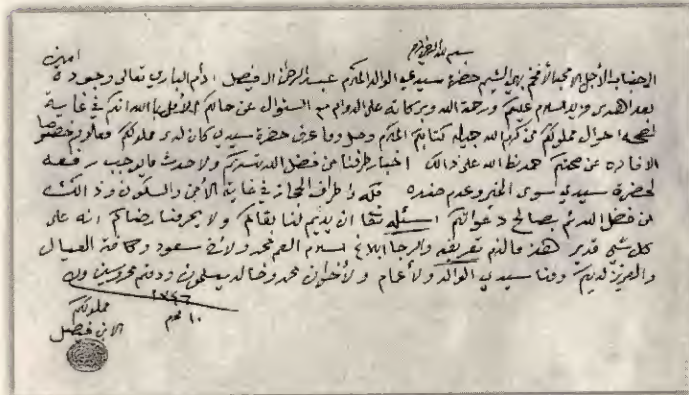 بسم الله الرحمن الرحيم
الى جناب الأجل الأمجد الأفخم بهي الشيم حضرة سيدي الوالد المكرم عبد الرحمن الفيصل أدام الباري تعالى وجوده امين
بعد اهدى مزيد السلام عليكم ورحمة الله وبركاته على الدوام مع السئوال عن حالكم لازلتم بالله انكم في غاية
الصحه احوال مملوككم من كرم الله جميله كتابكم المكرم وصل وما عرف حضرة سيدي كان لدى مملوككم معلوم خصوصا
الافاده عن صحتكم حمدنا الله على ذالك اخبار طرفنا من فضل الله تسركم ولا حدث ما يوجب رفعه
لحضرة سيدي سوى الخير وعدم ضده مكه واطراف الحجاز في غاية الأمن والسكون وذالك
من فضل الله ثم بصالح دعواتكم اسئله تعا ان يديم لنا بقاكم ولا يحرمنا رضاكم انه على
كل شي قدير هذا مالزم تعريفه والرجا ابلاغ السلام العم محمد والاخ سعود وكافة العيال
والعزيز لديكم ومنا سيدي الوالد والأعمام والأخوان محمد وخالد يسلمون ودمتم محروسين
١٣٤٦
١٠ محرم
مملوككم
الابن فيصل